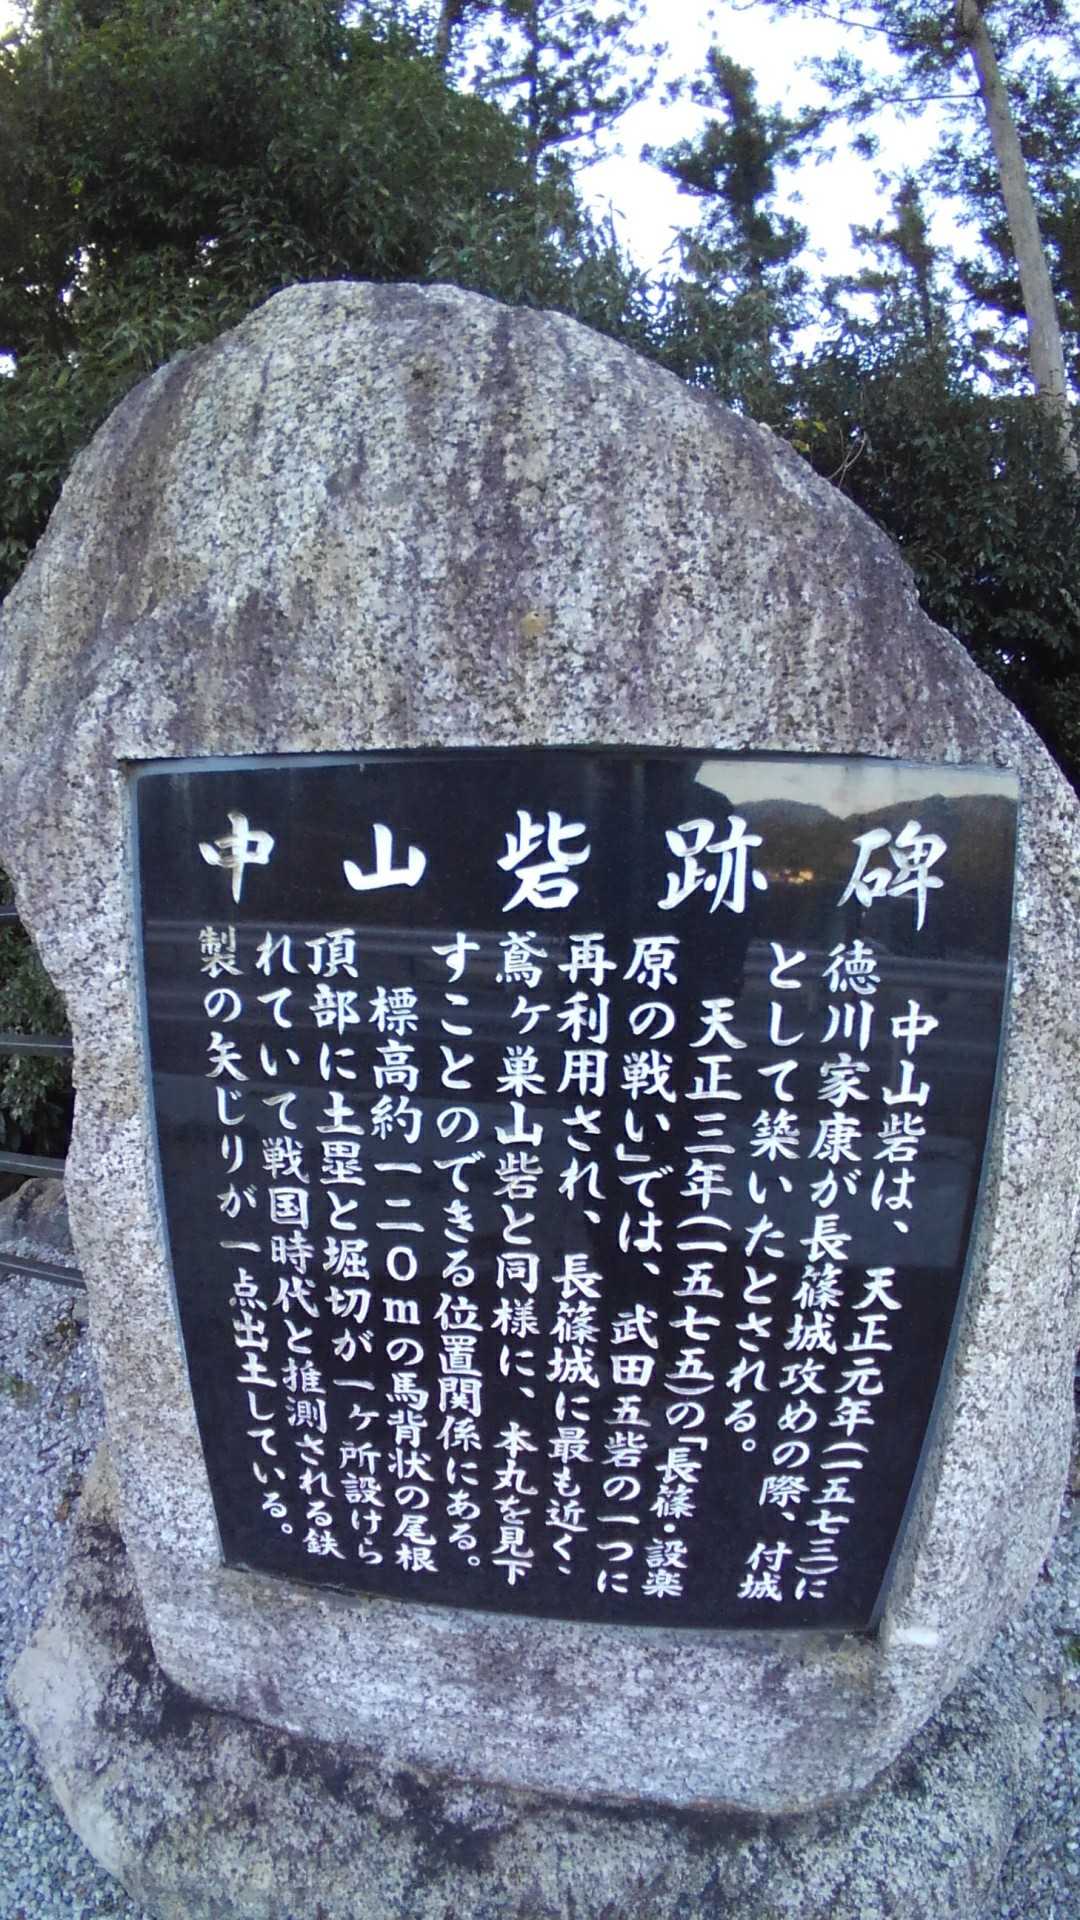 中山砦跡碑
中山砦は、天正元年(一五七三)に
徳川家康が長篠城攻めの際、付城
として築いたとされる。
天正三年(一五七五)の「長篠・設楽
原の戦い」では、武田五砦の一つに
再利用され、長篠城に最も近く、
鳶ヶ巣山砦と同様に、本丸を見下
すことのできる位置関係にある。
標高約一二0mの馬背状の尾根
頂部に土塁と堀切が一ヶ所設けら
れていて戦国時代と推測される鉄
製の矢じりが一点出土している。